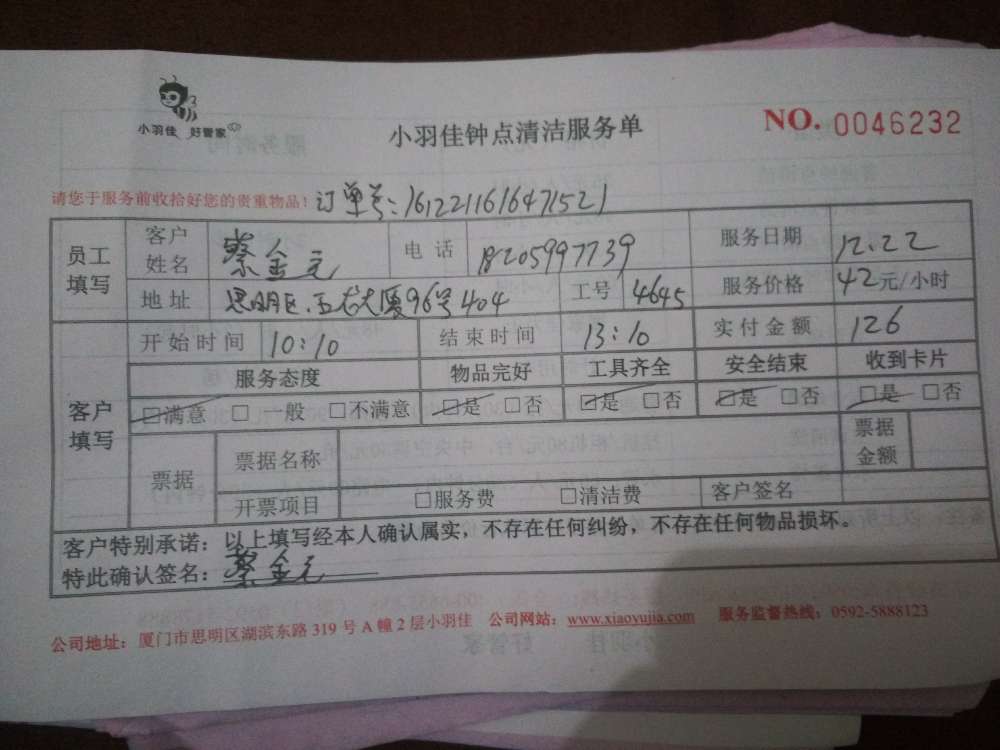 小羽佳 好管家
小羽佳钟点清洁服务单
NO. 0046232
请您于服务前收拾好您的贵重物品！ 订单号：1612211616471521
员工填写 客户姓名 蔡金元 电话 18205997739 服务日期 12.22
地址 思明区.五龙大厦96号404 工号 4645 服务价格 42元/小时
客户填写 开始时间 10:10 结束时间 13:10 实付金额 126
服务态度 物品完好 工具齐全 安全结束 收到卡片
□满意 □一般 □不满意 □是 □否 □是 □否 □是 □否 □是 □否
票据 票据名称 票据金额
开票项目 □服务费 □清洁费 客户签名
客户特别承诺：以上填写经本人确认属实，不存在任何纠纷，不存在任何物品损坏。
特此确认签名：蔡金元
公司地址：厦门市思明区湖滨东路 319 号 A 幢 2 层小羽佳 公司网站：www.xiaoyujia.com 服务监督热线：0592-5888123